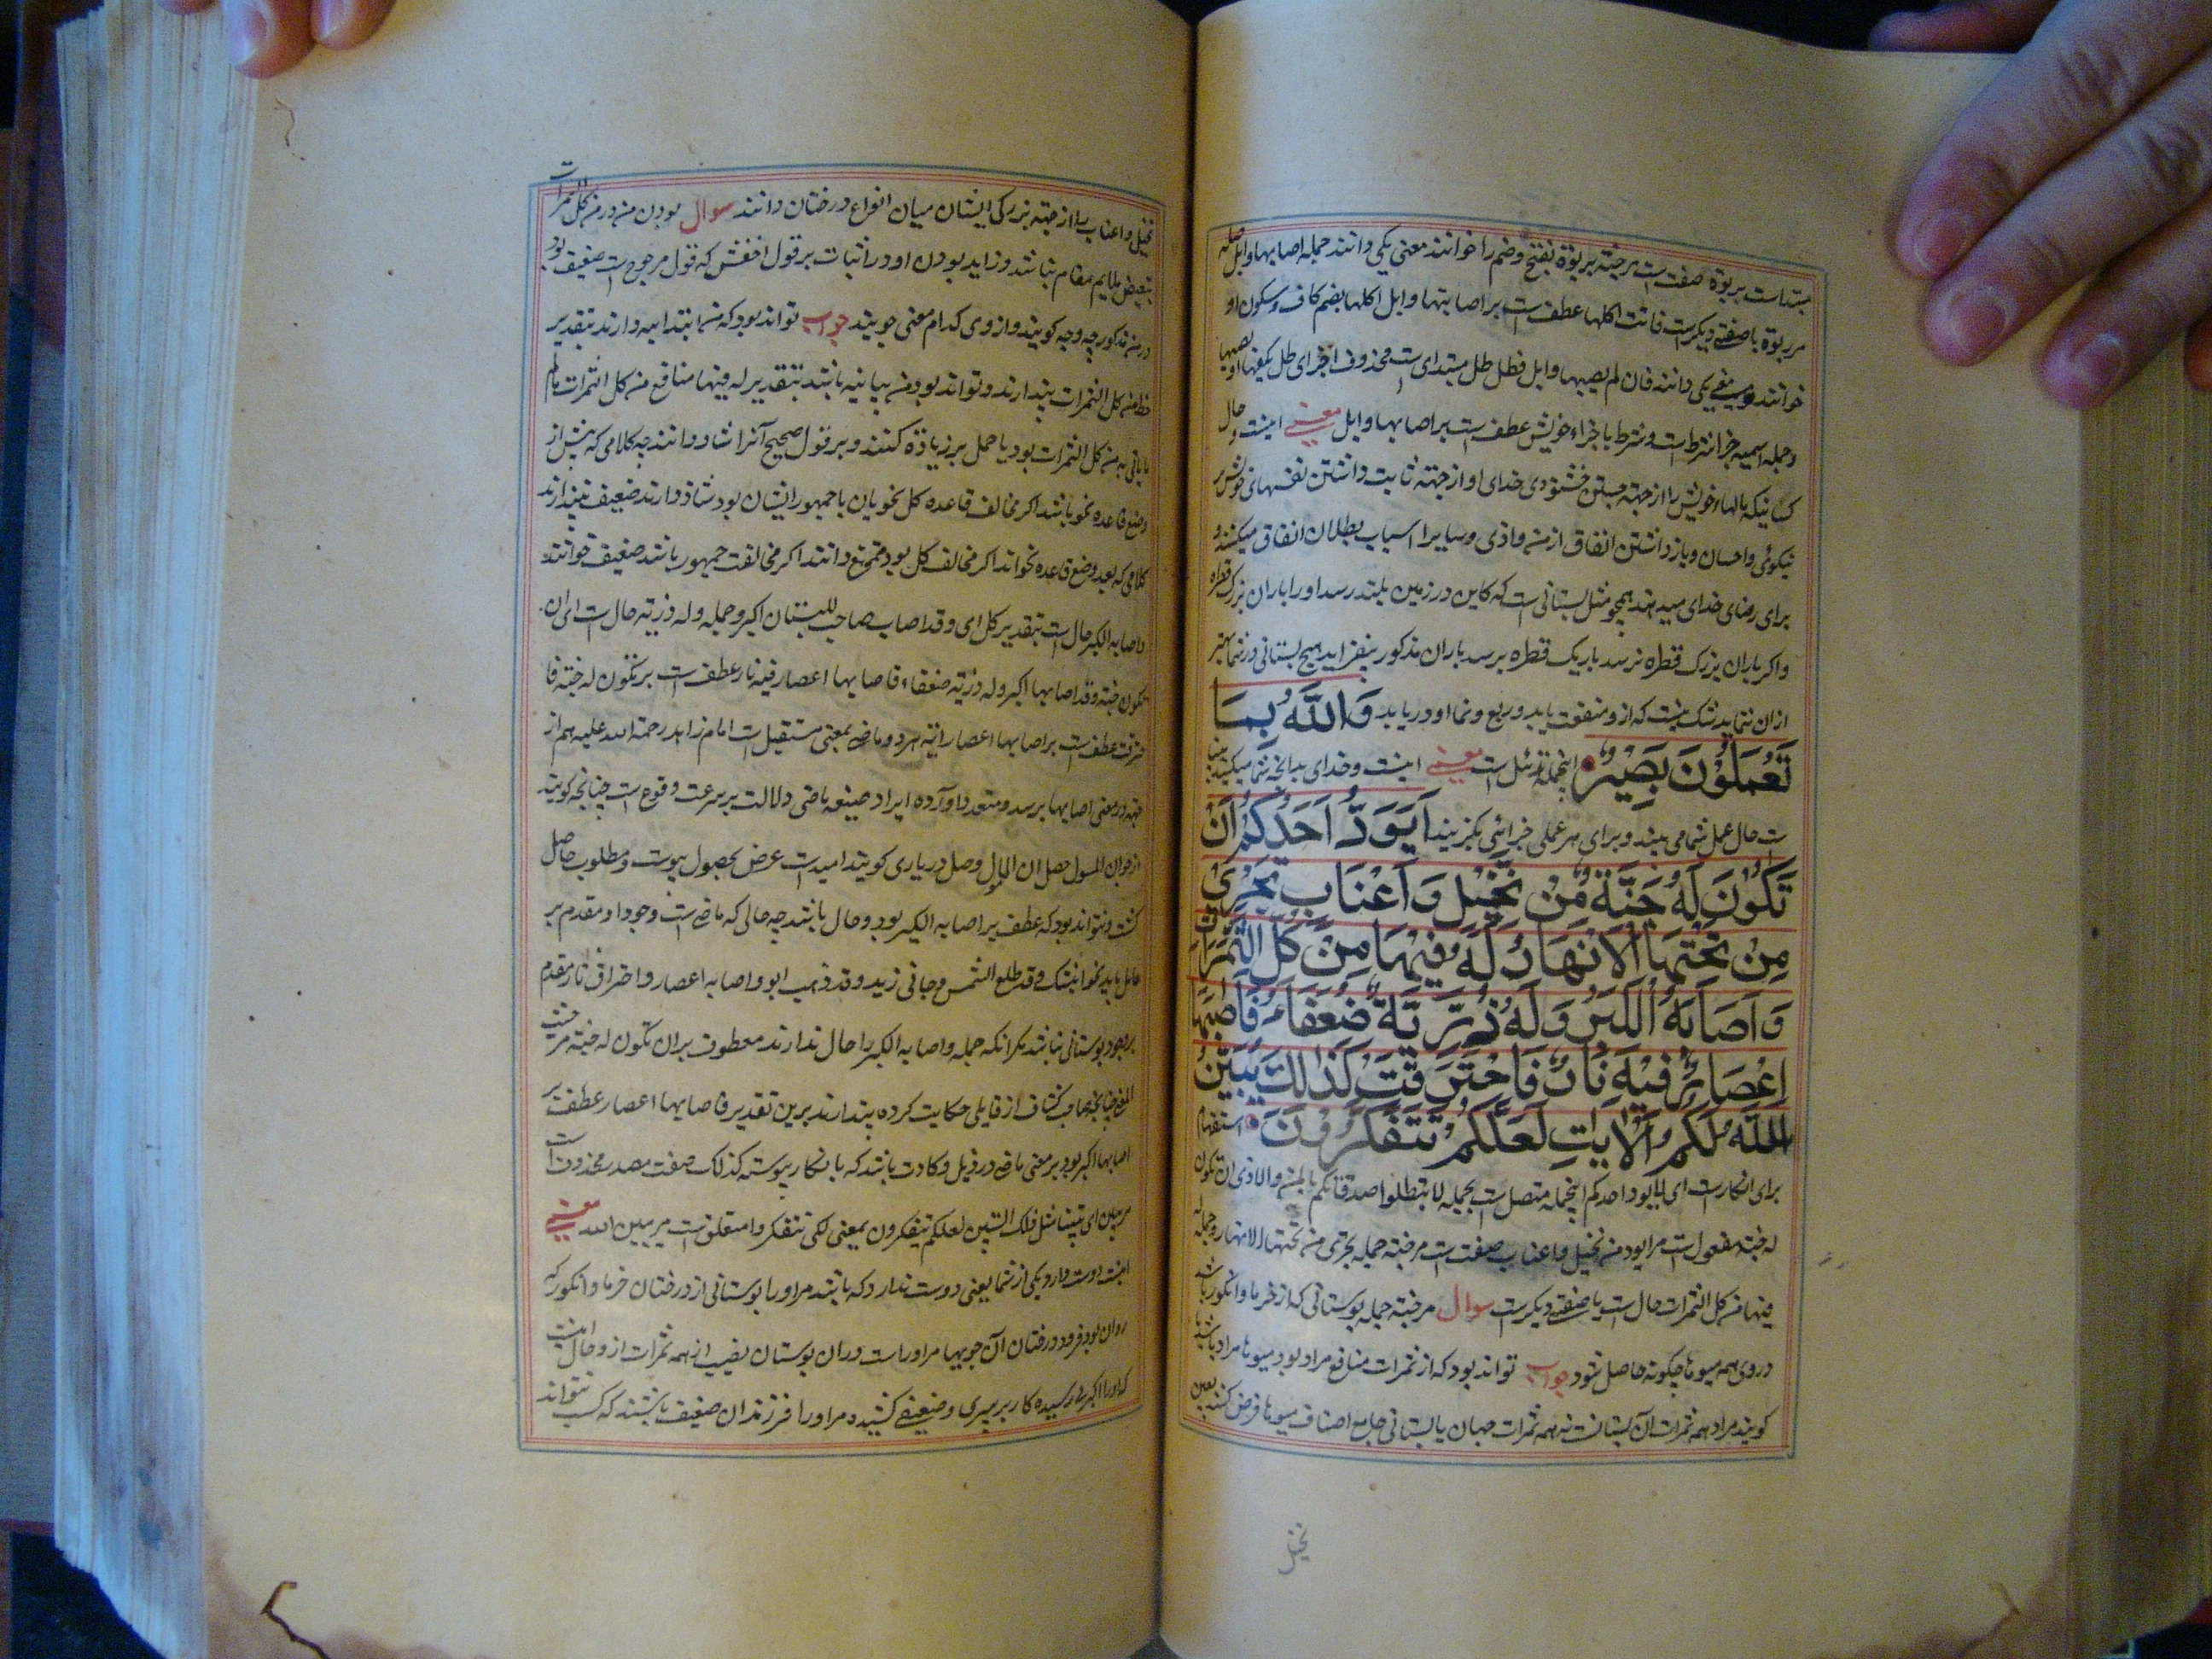 مبتداست بربوة صفت است مر جنة بربوة بفتح وضم را خوانند معنی یکی دانند جمله اصابها وابل صفت
مر ربوة یا صفتی دیگرست فاتت اکلها عطف است بر اصابتها وابل اکلها بضم کاف وسکون او
خوانند وبمعنی یکی دانند فان لم یصبها وابل فطل طل مبتدای است محذوف اجزای طل یکفیها او یصیبها
وجمله اسمیه جزا شرطست وشرط با جزاء خویش عطف است بر اصابها وابل معنی اینست وحال
کسانیکه مالهاء خویش را از جهته جستن خشنودی خدای او از جهته ثابت داشتن نفسهای خویش بر
نیکوئی واحسان وباز داشتن انفاق از من واذی وسایر اسباب بطلان انفاق میکنند و
برای رضای خدای میدهند همچو مثل بستانی است که کاین در زمین بلند رسد او را باران بزرک قطره
واکر باران بزرک قطره نرسد باریک قطره برسد باران مذکور بیفزاید هیچ بستانی در نما بهتر
ازان ننماید شک نیست که ازو منفعت یابد وریع ونما او دریابد وَاللَّهُ بِمَا
تَعْمَلُونَ بَصِيرٌ اینجمله تذئیل است معنی اینست وخدای بدانچه شما میکنید بینا
ست حال عمل شما می بیند وبرای هر عملی جزائی بکزیند أَيَوَدُّ أَحَدُكُمْ أَنْ
تَكُونَ لَهُ جَنَّةٌ مِنْ نَخِيلٍ وَأَعْنَابٍ تَجْرِي
مِنْ تَحْتِهَا الْأَنْهَارُ لَهُ فِيهَا مِنْ كُلِّ الثَّمَرَاتِ
وَأَصَابَهُ الْكِبَرُ وَلَهُ ذُرِّيَّةٌ ضُعَفَاءُ فَأَصَابَهَا
إِعْصَارٌ فِيهِ نَارٌ فَاحْتَرَقَتْ كَذَلِكَ يُبَيِّنُ
اللَّهُ لَكُمُ الْآيَاتِ لَعَلَّكُمْ تَتَفَكَّرُونَ استفهام
برای انکارست ای لا یود احدکم اینجمله متصل است بجمله لا تبطلوا صدقاتکم بالمن والاذی ان تکون
له جنة مفعول است مر ایود من نخیل واعناب صفت است مر جنة جمله تجری من تحتها الانهار وجمله له
فیها من کل الثمرات حال است یا صفتی دیکرست سوال مر جنة جمله بوستانی که از خرما وانکور باشد
دروی همه میوها چکونه حاصل شود جواب تواند بود که از ثمرات منافع مراد بود میوها مراد باشد یا
کویند مراد همه ثمرات آن بستانست نه همه ثمرات جهان یا بستانی جامع اصناف میوها فرض کنند
نخیل
نخیل واعناب را از جهته بزرکی ایشان میان انواع درختان دانند سوال بودن من در من کل الثمرات
تبعیض ملایم مقام نباشد وزاید بودن او در اثبات بر قول اخفش که قول مرجوح است ضعیف بود
در من مذکور چه وجه کویند واز وی کدام معنی جویند جواب تواند بود که من ابتدائیه دارند بتقدیر
من کل الثمرات پندارند وتواند بود من بیانیه باشد بتقدیر له فیها منافع من کل الثمرات
من کل الثمرات بود یا حمل بر زیاده کنند وبر قول صحیح آنرا شاذ دانند چه کلامی که پیش از
وضع قاعده نحو باشد اکر مخالف قاعده کل نحویان یا جمهور ایشان بود شاذ دارند ضعیف نپندارند
کلامی که بعد وضع قاعده نحو اند اکر مخالف کل بود ممتنع دانند اکر مخالفت جمهور باشد ضعیف خوانند و
واصابه الکبر حال است بتقدیر کل ای وقد اصاب صاحب البستان الکبر وجمله وله ذریة حال است ای ان
تکون جنة وقد اصابها الکبر وله ذریة ضعفاء فاصابها اعصار فیه نار عطف است بر تکون له جنة فا
حترقت عطف است بر اصابها اعصار وماضی بمعنی مستقبل است امام زاهد رحمة الله علیه هم از
در معنی اصابها برسد آورده ایراد صیغه ماضی دلالت بر سرعت وقوع است چنانچه کویند
حصل المال وصل دریاری کویند امیدست عرض بحصول پیوست ومطلوب حاصل
کشت ونتواند بود که عطف بر اصابه الکبر بود وحال باشد چه حالی که ماضی است وجود او مقدم بر
عامل باید نحو وقد طلع الشمس وجانی زید وقد ذهب ابوه واصابه اعصار واحراق نار مقدم
بر وجود بوستانی نباشد مکر آنکه جمله واصابه الکبر را حال ندارند معطوف بر ان تکون له جنة
چنانچه صاحب کشاف از قایلی حکایت کرده پندارند برین تقدیر فاصابها اعصار عطف بر
اصابها الکبر بود بر معنی ماضی در ذیل وکانت باشد که با انکار پیوسته کذلک صفت مصدر محذوف است
مر یبین ای تبیینا مثل ذلک التبیین لعلکم تتفکرون بمعنی لکی تتفکروا متعلق است مر یبین الله معنی
اینست دوست دارد یکی از شما یعنی دوست ندارد که باشد مر او را بوستانی از درختان خرما وانکور که
روان بود فرود درختان آن جویها مر او راست در ان بوستان نصیب از همه ثمرات ازو وحال اینست
که او را کبر رسیده کار بر پیری وضعیفی کشیده مر او را فرزندان ضعیف باشند که کسب نتوانند